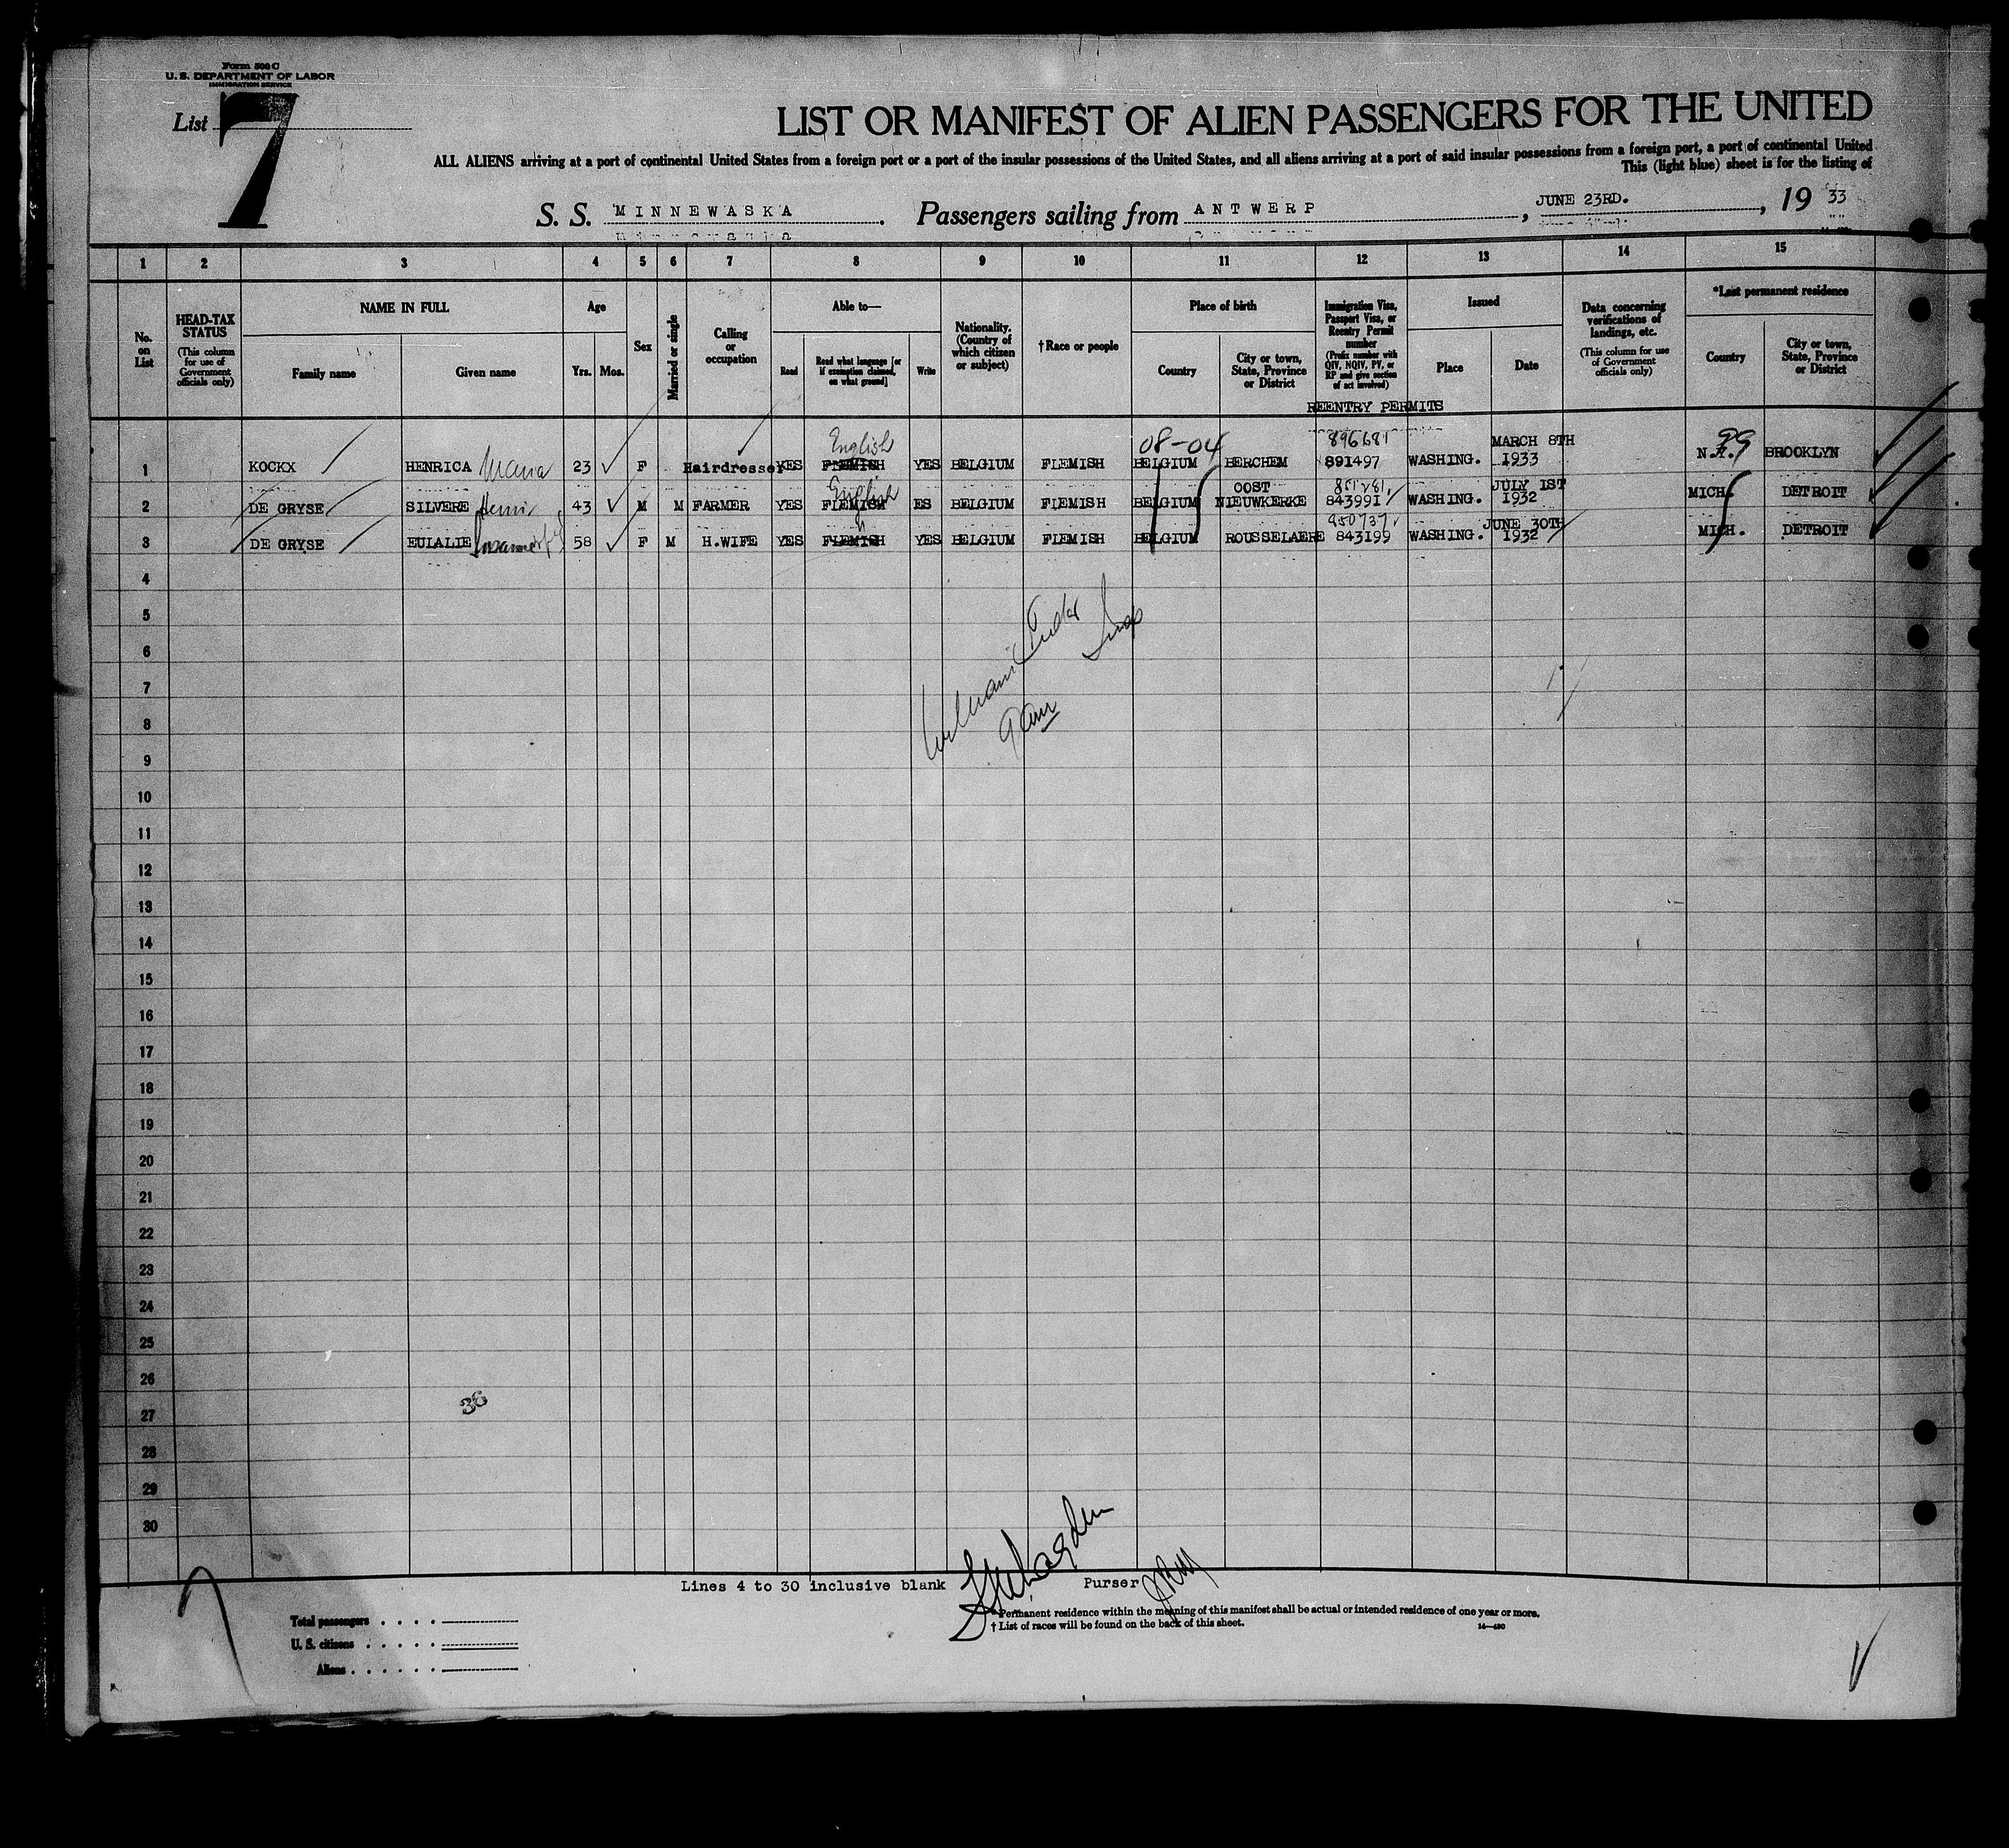 Form 500 C
U. S. DEPARTMENT OF LABOR
IMMIGRATION SERVICE
List 7
LIST OR MANIFEST OF ALIEN PASSENGERS FOR THE UNITED
ALL ALIENS arriving at a port of continental United States from a foreign port or a port of the insular possessions of the United States, and all aliens arriving at a port of said insular possessions from a foreign port, a port of continental United
This (light blue) sheet is for the listing of
S. S. MINNEWASKA. Passengers sailing from ANTWERP, JUNE 23RD., 19 33
1 2 3 4 5 6 7 8 9 10 11 12 13 14 15
No. on List
HEAD-TAX STATUS (This column for use of Government officials only)
NAME IN FULL
Family name
Given name
Age
Yrs. Mos.
Sex
Married or single
Calling or occupation
Able to—
Read
Read what language [or if exemption claimed, on what ground]
Write
Nationality. (Country of which citizen or subject)
†Race or people
Place of birth
Country
City or town, State, Province or District
Immigration Visa, Passport Visa, or Reentry Permit number (Prefix number with QIV, NQIV, PV, or RP and give section of act involved)
Issued
Place
Date
Data concerning verifications of landings, etc. (This column for use of Government officials only)
*Last permanent residence
Country
City or town, State, Province or District
REENTRY PERMITS
English 08-04 896681 MARCH 8TH 99
1 KOCKX HENRICA Maria 23 F Hairdresser YES FLEMISH YES BELGIUM FLEMISH BELGIUM BERCHEM 891497 WASHING. 1933 BROOKLYN
English OOST JULY 1ST
2 DE GRYSE SILVERE Henri 43 M M FARMER YES FLEMISH ES BELGIUM FLEMISH BELGIUM NIEUWKERKE 843991 WASHING. 1932 MICH. DETROIT
JUNE 30TH
3 DE GRYSE EULALIE 58 F M H.WIFE YES FLEMISH YES BELGIUM FLEMISH BELGIUM ROUSSELAERE 843199 WASHING. 1932 MICH. DETROIT
4
5
6
7
8
9
10
11
12
13
14
15
16
17
18
19
20
21
22
23
24
25
26
27
28
29
30
36
Lines 4 to 30 inclusive blank Purser
Total passengers
U. S. citizens
Aliens
* Permanent residence within the meaning of this manifest shall be actual or intended residence of one year or more.
† List of races will be found on the back of this sheet.
14—430